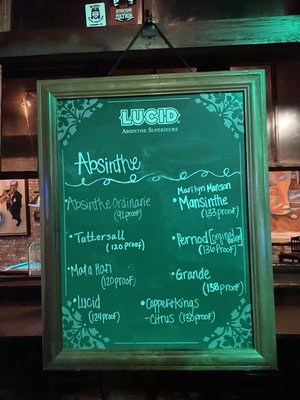 LUCID
ABSINTHE SUPÉRIEURE
Absinthe
• Absinthe Ordinarie
(91 proof)
• Tattersall
(120 proof)
• Mata Hari
(120 proof)
• Lucid
(124 proof)
Marilyn Manson
• Mansinthe
(133 proof)
• Pernod
(136 proof)
• Grande
(138 proof)
• Copper & Kings
- Citrus (130 proof)